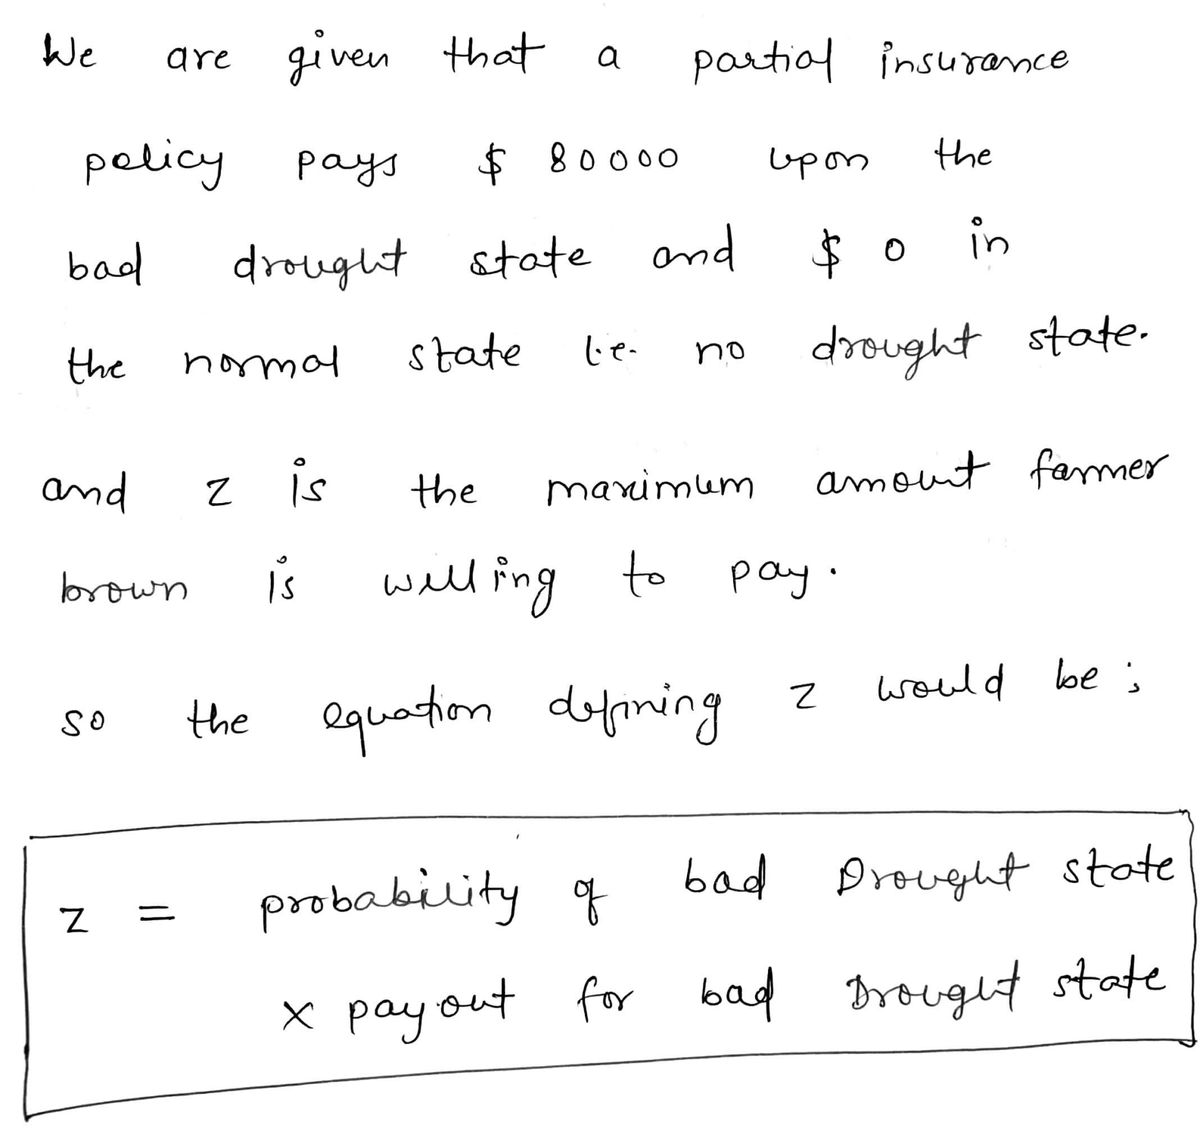 We are given that a partial insurance
policy pays $ 80000 upon the
bad drought state and $ 0 in
the normal state i.e. no drought state.
and z is the maximum amount farmer
brown is willing to pay.
so the equation defining z would be ;
z = probability of bad Drought state
x payout for bad Drought state